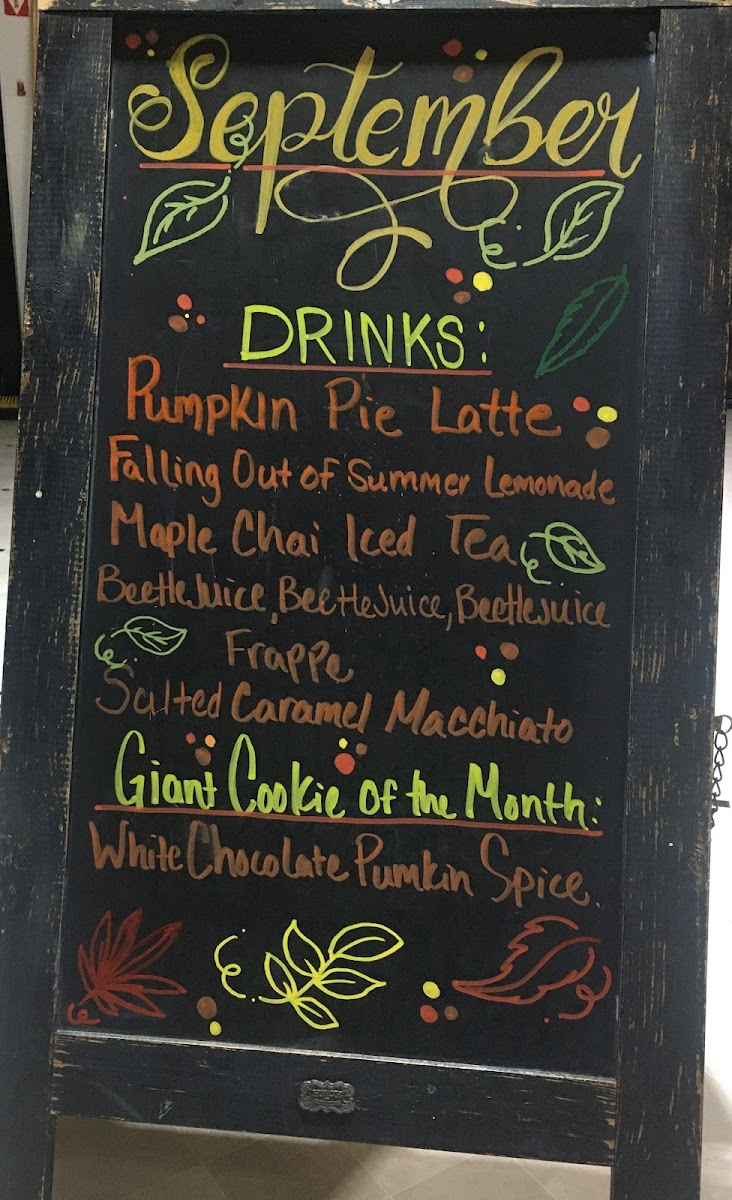 September
DRINKS:
Pumpkin Pie Latte
Falling Out of Summer Lemonade
Maple Chai Iced Tea
BeetleJuice, BeetleJuice, BeetleJuice
Frappe
Salted Caramel Macchiato
Giant Cookie of the Month:
White Chocolate Pumkin Spice.